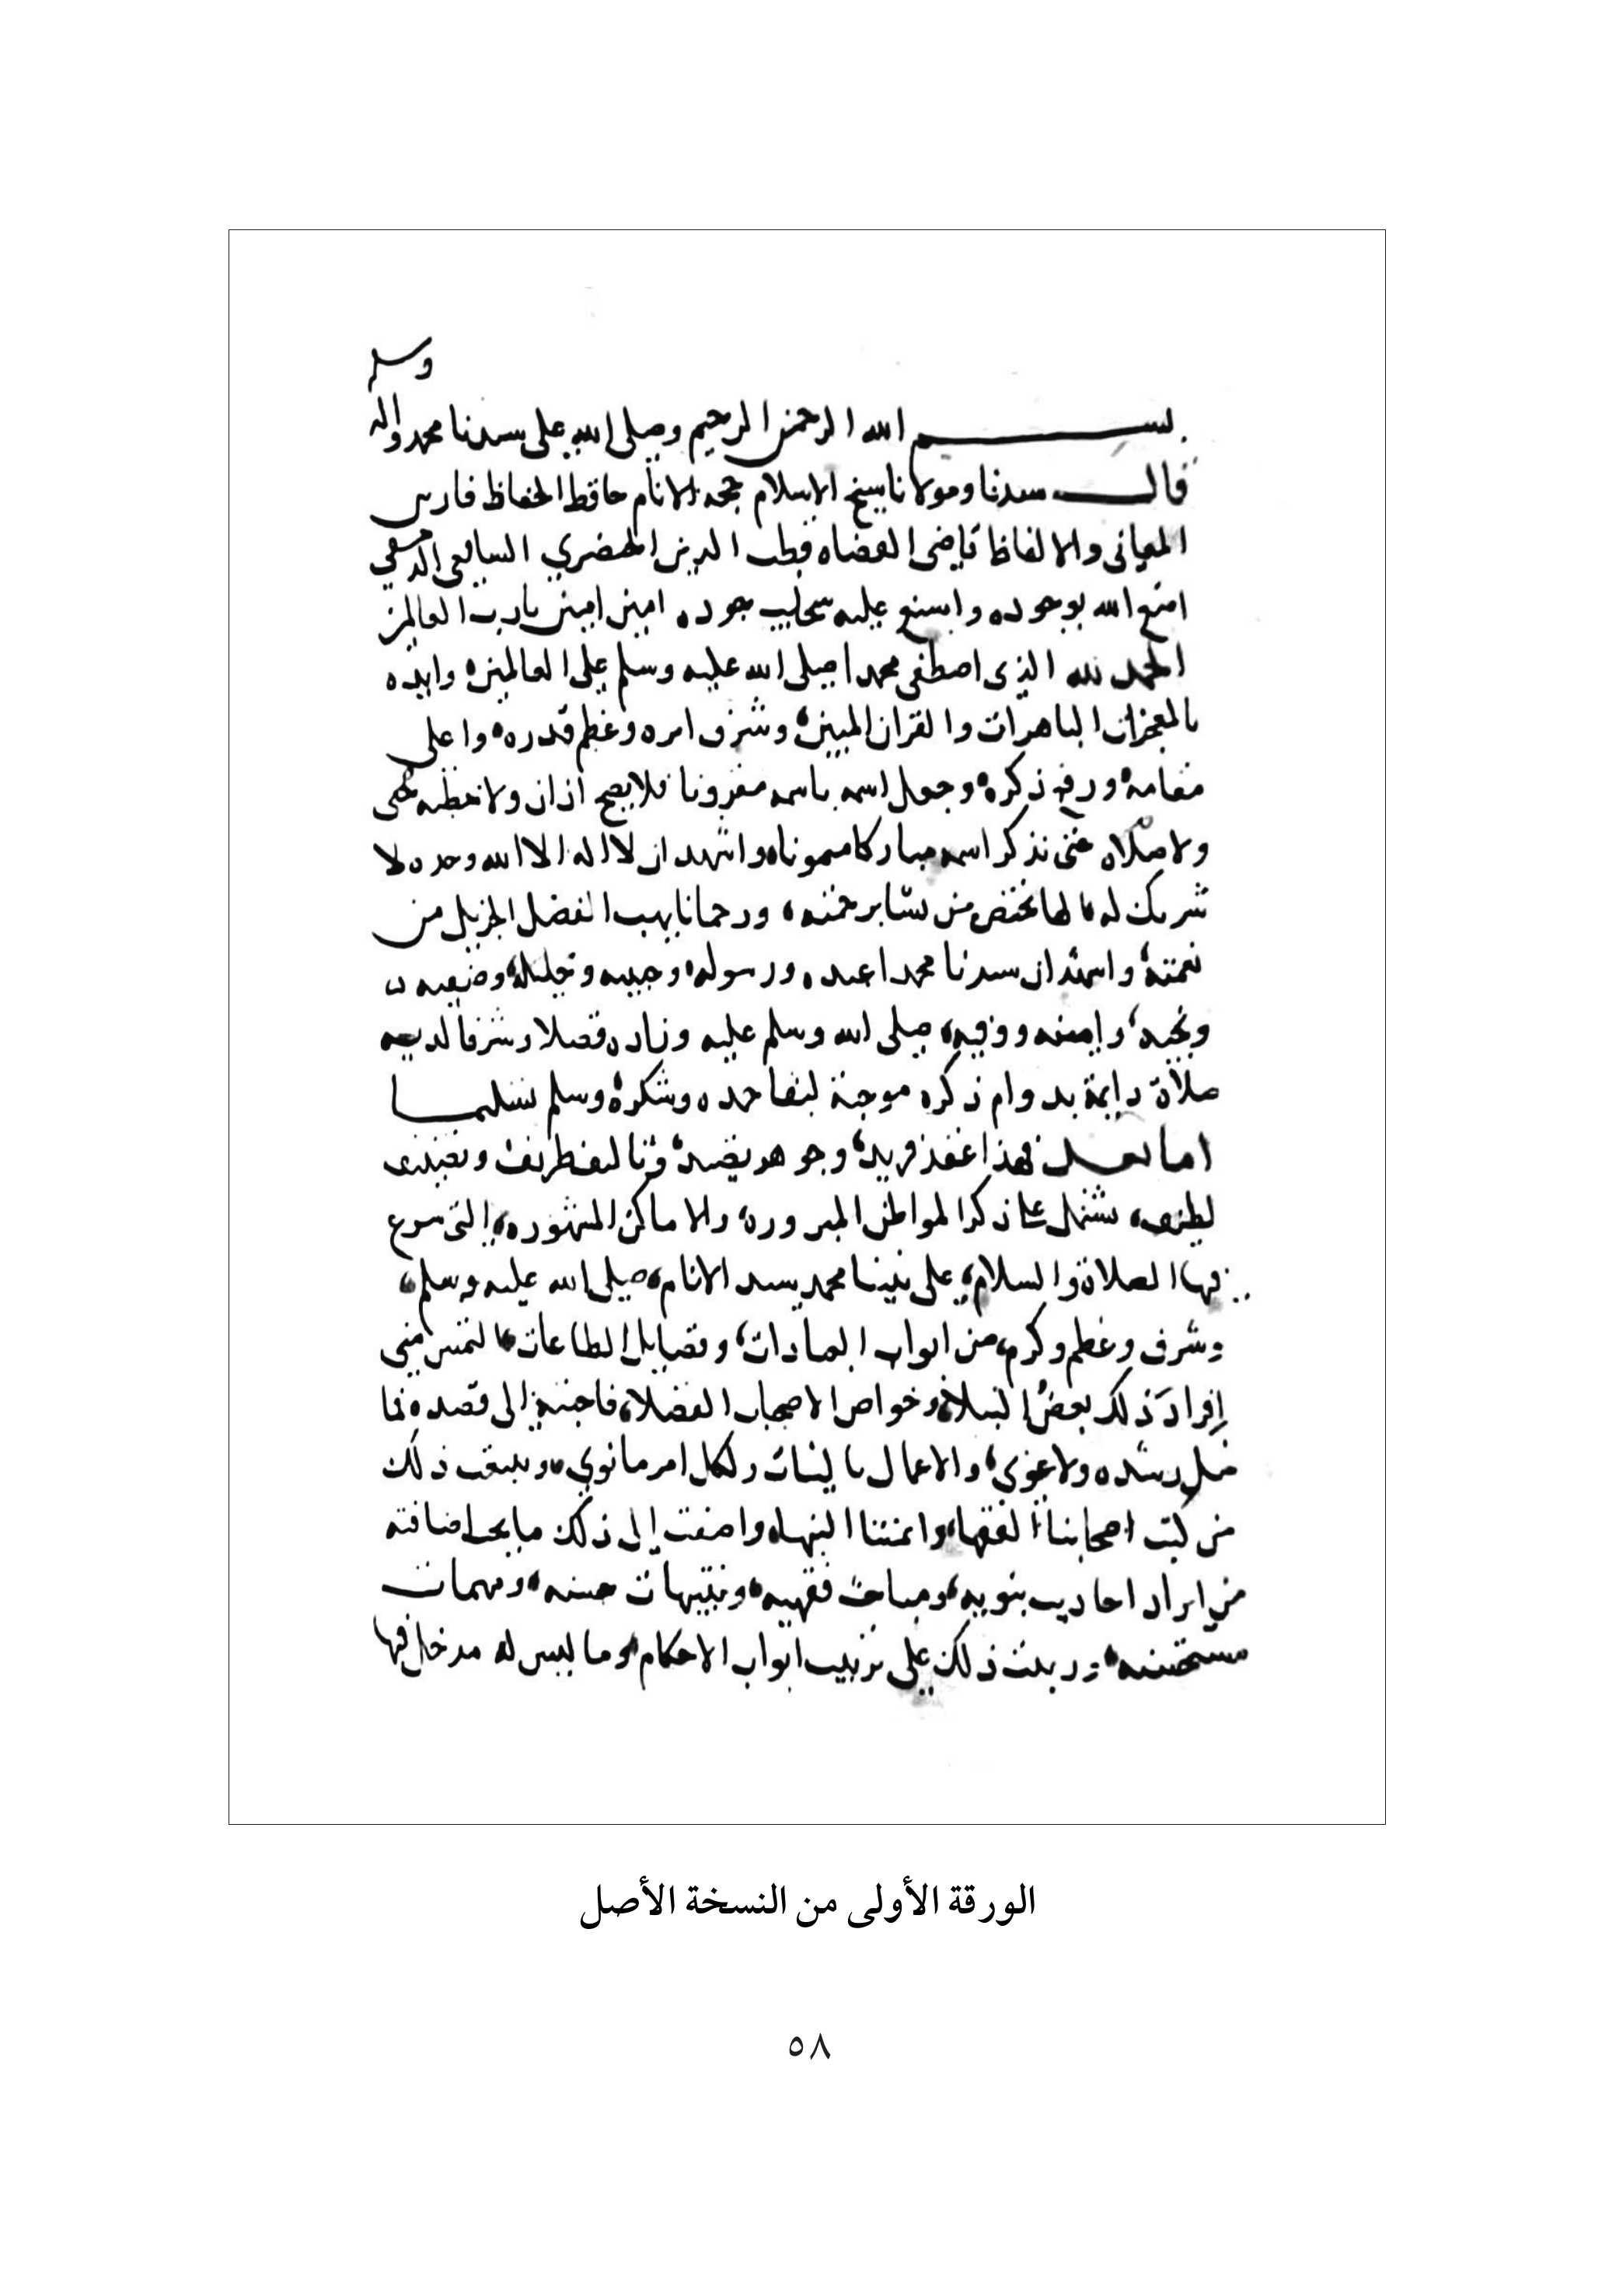 وسلم
بســـــم الله الرحمن الرحيم وصلى الله على سيدنا محمد واله
قالــــ سيدنا ومولانا شيخ الاسلام حجة الانام حافظ الحفاظ فارس
المعاني والالفاظ قاضى القضاه قطب الدين الخيضري الشافعي الدمشقي
امتع الله بوجوده واسبغ عليه سحايب جوده امين امين يا رب العالمين
الحمد لله الذى اصطفى محمدا صلى الله عليه وسلم على العالمين وايده
بالمعجزات الباهرات والقران المبين وشرف امره وعظم قدره واعلى
مقامه ورفع ذكره وجعل اسمه باسمه مقرونا فلا يصح اذان ولا خطبه
ولا صلاه حتى نذكر اسمه مباركا ميمونا واشهد ان لا اله الا الله وحده لا
شريك له الها يختص من يشا برحمته ورحمانا يهب الفضل الجزيل من
نعمته واشهد ان سيدنا محمدا عبده ورسوله وحبيبه وخليله وصفيه
ونجيه وامينه صلى الله وسلم عليه وزاده فضلا وشرفا لديه
صلاة دايمة بدوام ذكره موجبة لنا حمده وشكره وسلم تسليمــا
اما بعــد فهذا عقد فريد وجوهر نضيد وتاليف ظريف وتصنيف
لطيف يشتمل على ذكر المواطن المبروره والاماكن المشهوره التى شرع
فيها الصلاة والسلام على نبينا محمد سيد الانام صلى الله عليه وسلم
وشرف وعظم وكرم من ابواب العبادات وفضايل الطاعات التمس مني
افراد ذلك بعض النبلاء وخواص الاصحاب الفضلا فاجبته الى قصده فما
ضل رشده ولا غوى والاعمال بالنيات ولكل امر ما نوي وتتبعت ذلك
من كتب اصحابنا الفقها وائمتنا النبها واضفت إلى ذلك ما يجب اضافته
من ايراد احاديث نبويه ومباحث فقهيه وتنبيهات حسنه ومهمات
مستحسنه ورتبت ذلك على ترتيب ابواب الاحكام وما ليس له مدخل فيها
الورقة الأولى من النسخة الأصل
٥٨